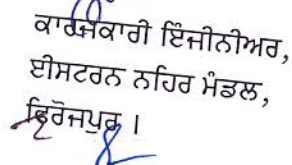 ਕਾਰਜਕਾਰੀ ਇੰਜੀਨੀਅਰ,
ਈਸਟਰਨ ਨਹਿਰ ਮੰਡਲ,
ਫਿਰੋਜਪੁਰ ।